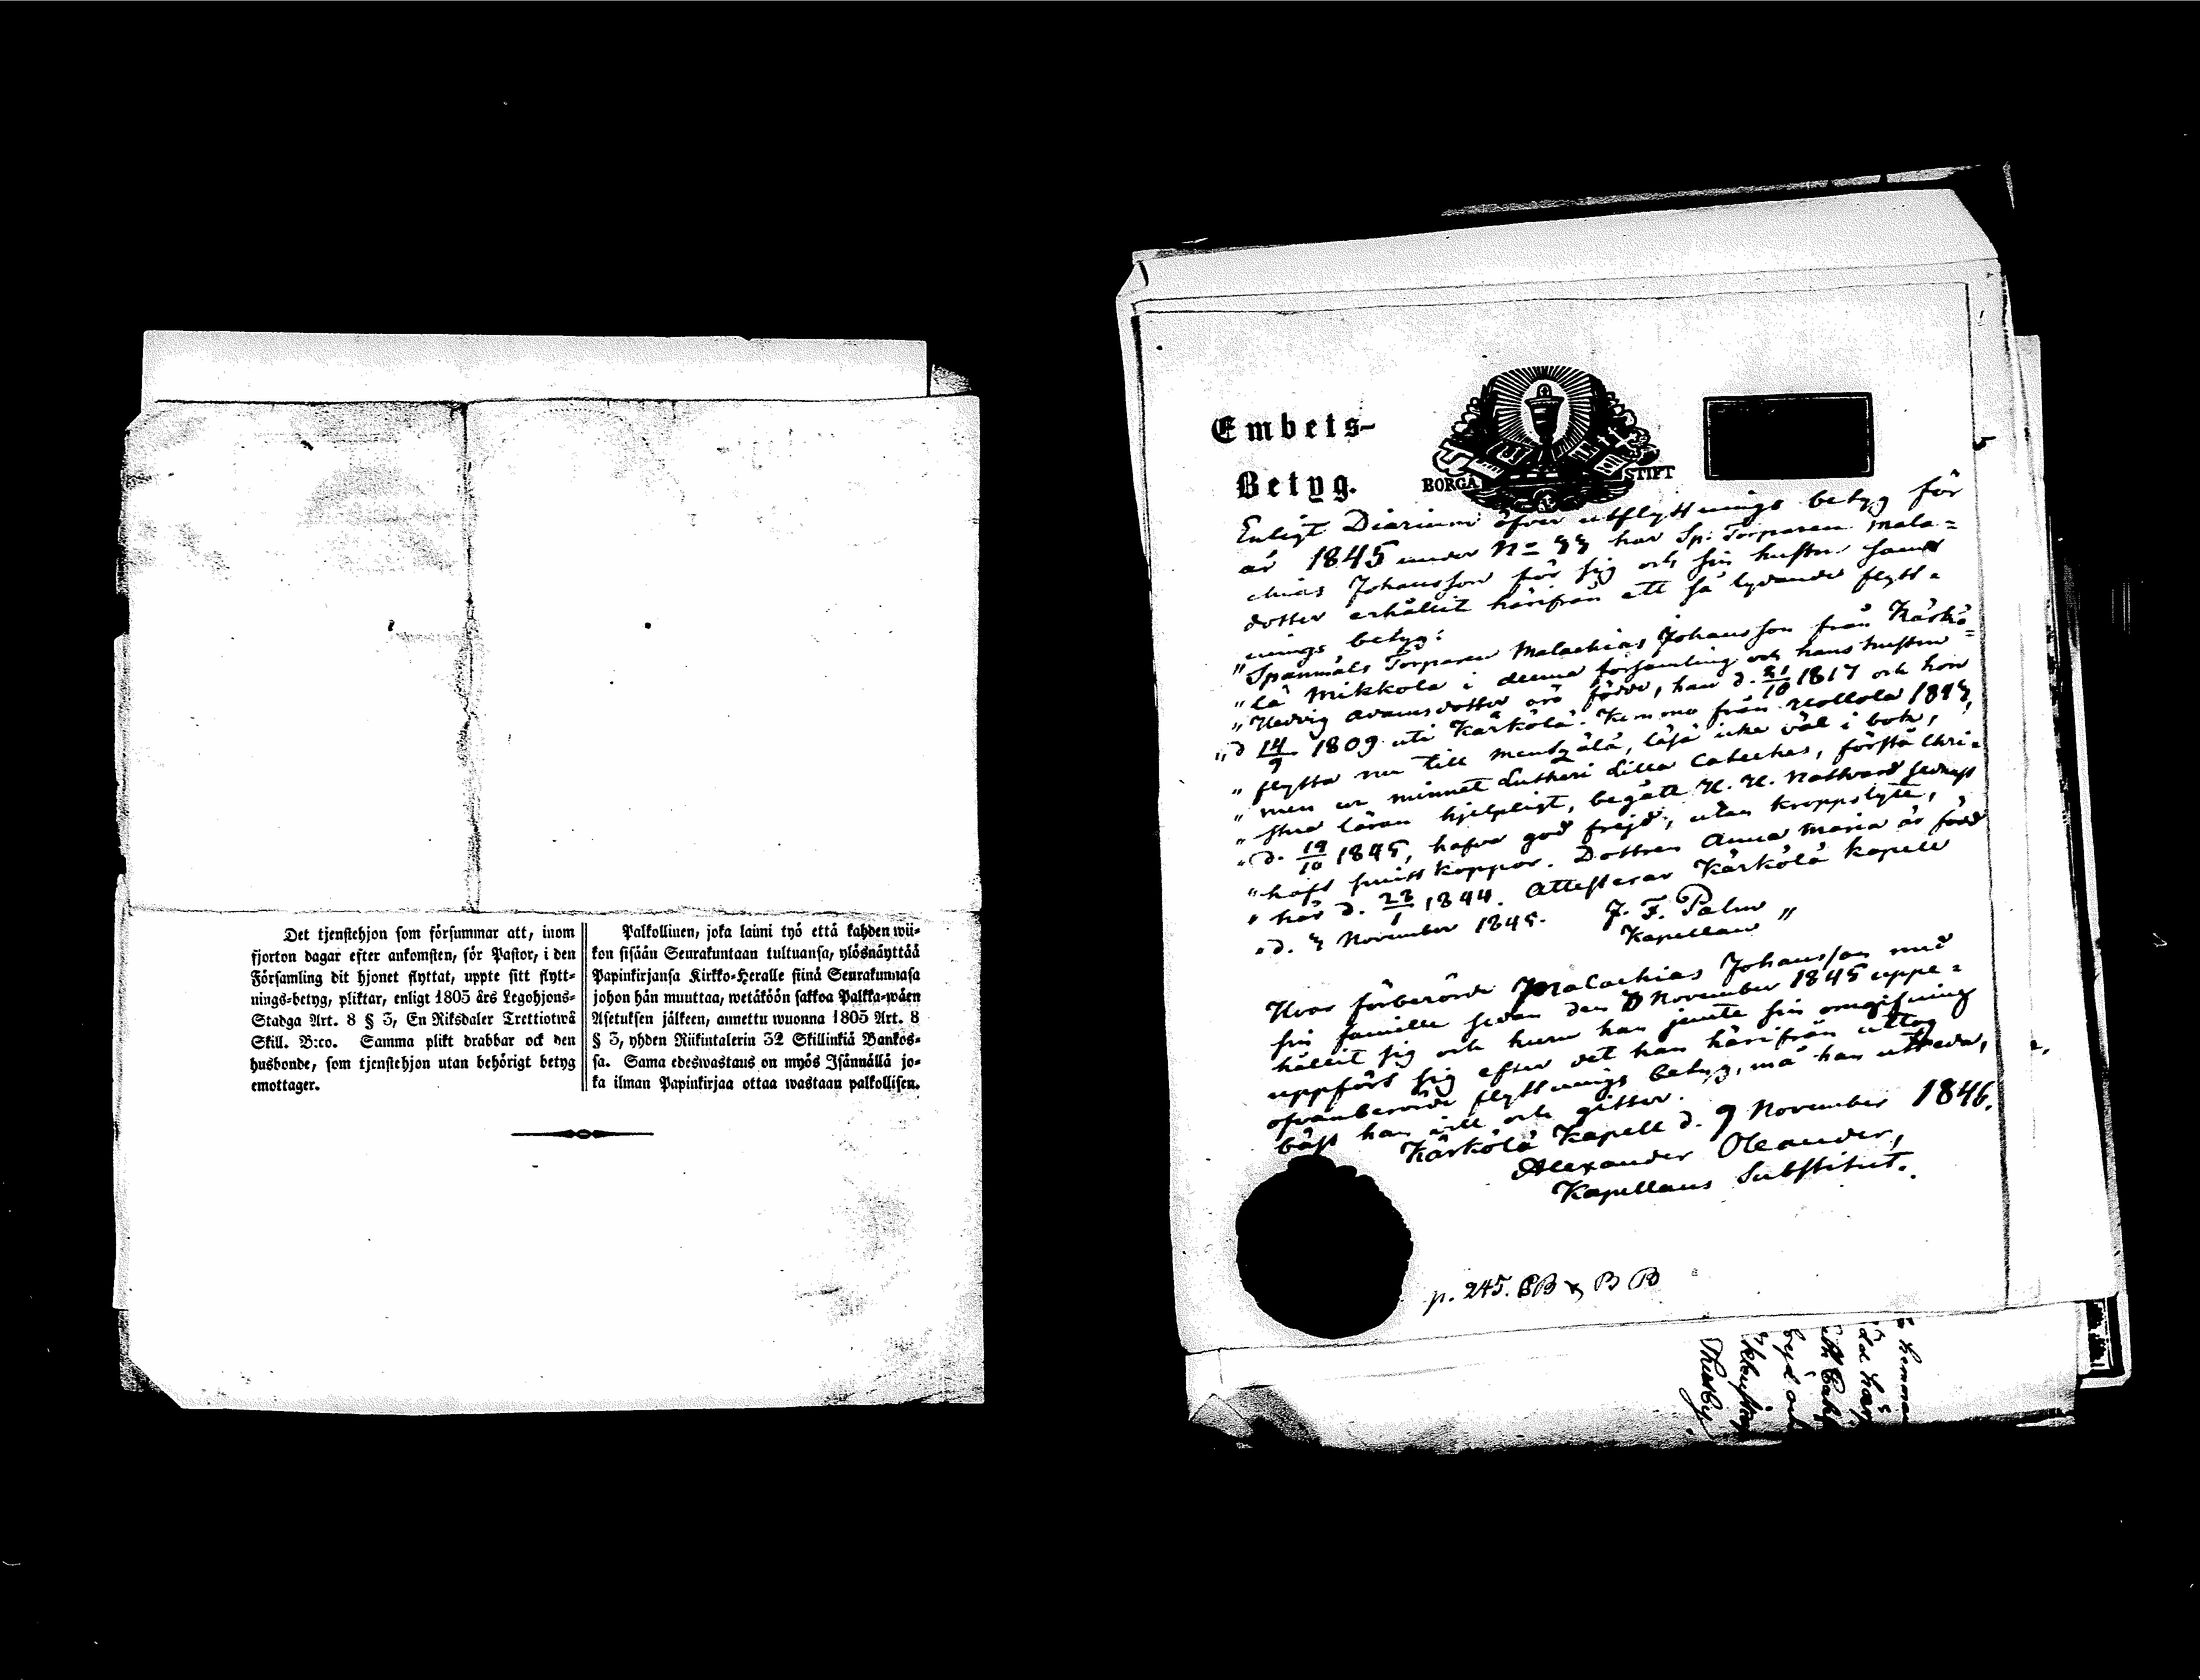 Det tjenstehjon som försummar att, inom
fjorton dagar efter ankomsten, för Pastor, i den
Församling dit hjonet flyttat, uppte sitt flytt-
nings-betyg, pliktar, enligt 1805 års Legohjons-
Stadga Art. 8 § 3, En Riksdaler Trettiotwå
Skill. B:co. Samma plikt drabbar ock den
husbonde, som tjenstehjon utan behörigt betyg
emottager.
Palkollinen, joka laimi lyö että kahden wii-
kon sisään Seurakuntaan tultuansa, ylösnäyttää
Papinkirjansa Kirkko-Herralle siinä Seurakunnasa
johon hän muuttaa, wetäköön sakkoa Palkka-wäen
Asetuksen jälkeen, annettu wuonna 1805 Art. 8
§ 3, yhden Riikintalerin 32 Skillinkiä Bankos-
sa. Sama edeswastaus on myös Isännällä jo-
ka ilman Papinkirjaa ottaa wastaan palkollisen.
Embets-
Betyg.
BORGÅ STIFT
Enligt Diarium öfver utflyttnings betyg för
år 1845 under No har Sp: Torparen Mala=
chias Johansson för sig och sin hustru samt
dotter erhållit härifrån ett så lydande flytt-
nings betyg:
"Spanmåls Torparen Malachias Johansson från Kärkö=
"lä Mikkola i denna församling och hans hustru
"Hedvig Adamsdotter äro födde, han d. 21/10 1817 och hon
"d 14/9 1809 uti Kärkölä. Komna från Hollola
"flytta nu till Mentzälä, läsa icke väl i bok,
"men ur minnet Lutheri Lilla Cateches, förstå Chri-
"stna läran hjelpligt, begått H. H. Nattvard sednast
"d. 19/10 1845, hafva god frejd, utan kroppslyte,
"haft smittkoppor. Dottren Anna Maria är född
"här d. 1844. Attesterar Kärkölä Kapell
"d. November 1845. J. F. Palm "
Kapellan
Hvar förberörde Malachias Johansson med
sin familie sedan den November 1845 uppe=
hållit sig och huru han jemte sin omgifning
uppfört sig efter det han härifrån uttog
ofvanberörde flyttnings betyg, må han utreda,
bäst han vill och gitter.
Kärkölä Kapell d. 9 November 1846.
Alexander Oleander,
Kapellans Substitut.
p. 245.